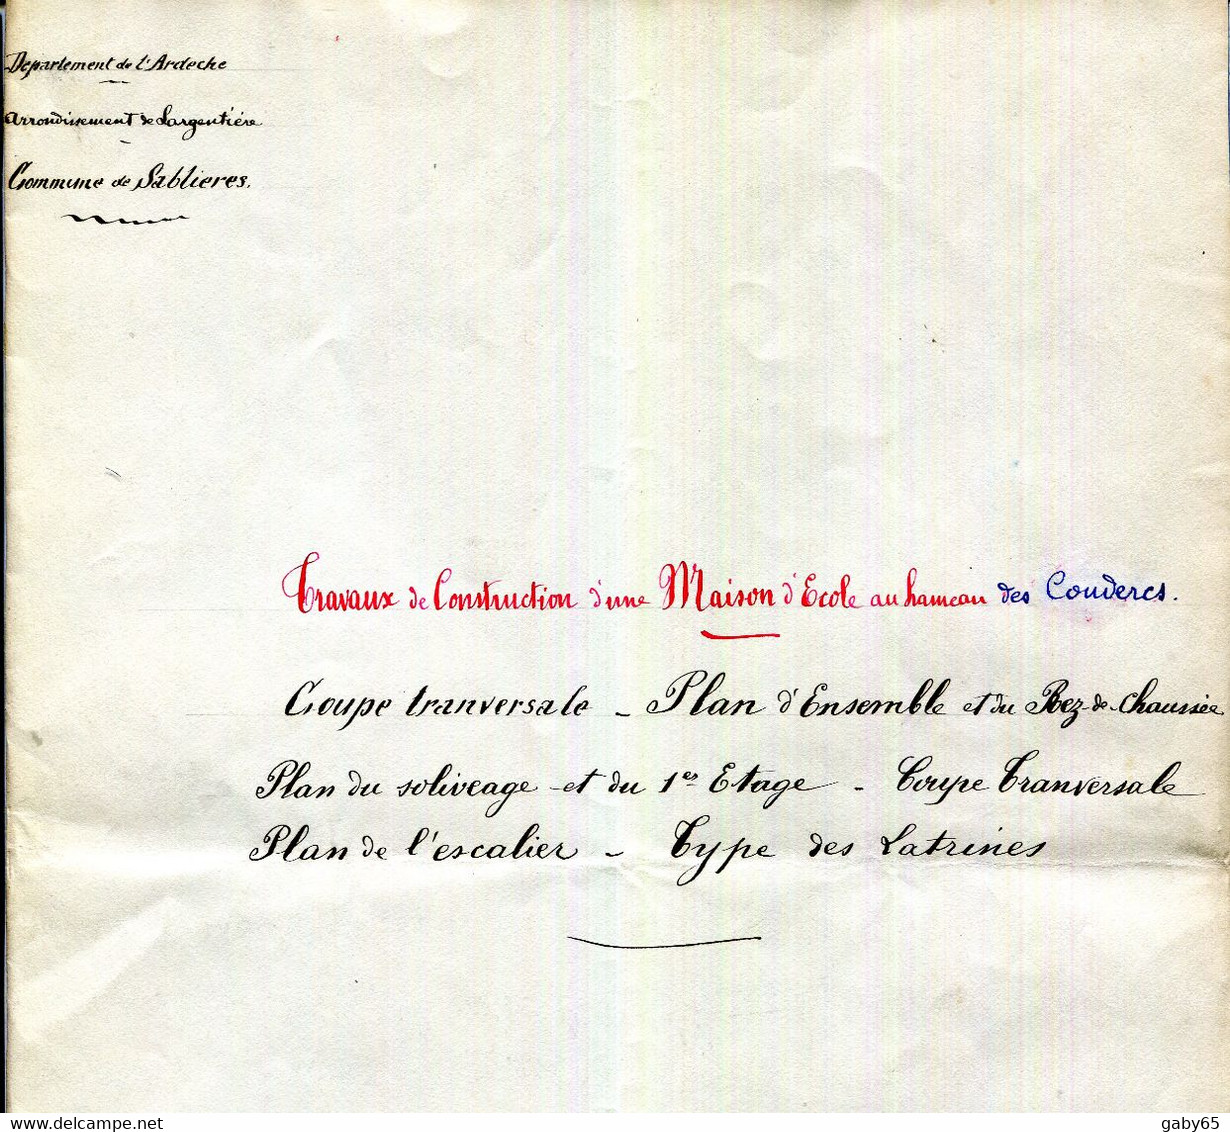 Département de l'Ardèche
Arrondissement de Largentière
Commune de Sablières.
Travaux de Construction d'une Maison d'Ecole au hameau des Coudercs.
Coupe tranversale _ Plan d'Ensemble et du Rez-de-Chaussée
Plan du soliveage et du 1er Etage _ Coupe Tranversale
Plan de l'escalier _ Type des Latrines
delcampe.net
gaby65